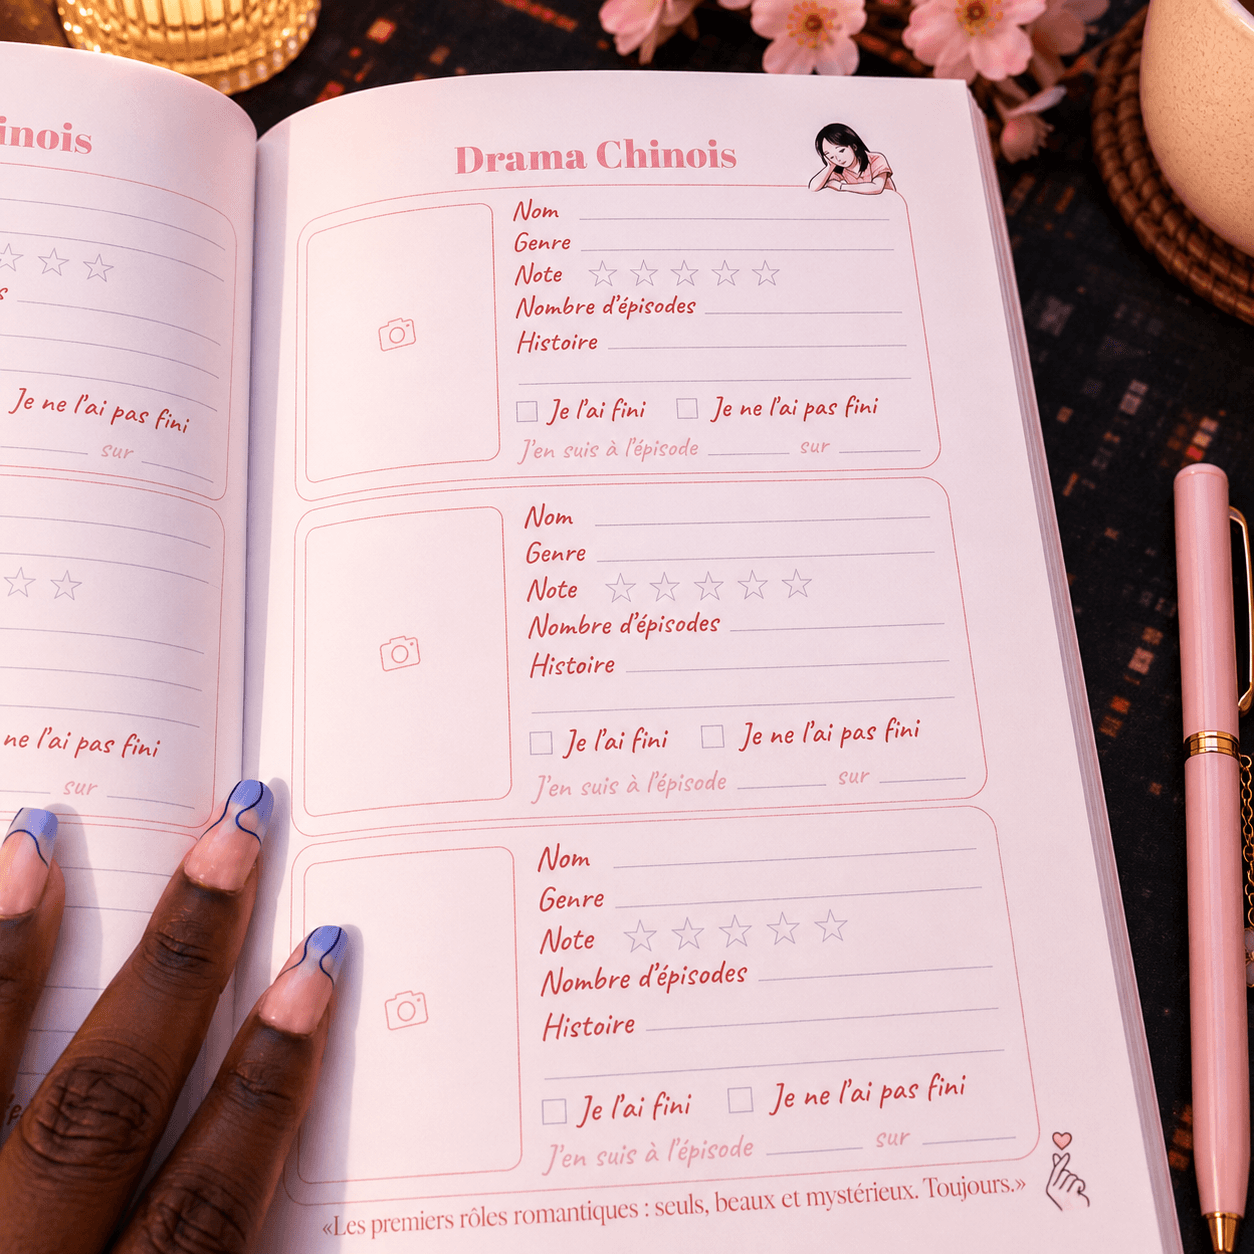 inois
Je ne l'ai pas fini
sur
ne l'ai pas fini
sur
Drama Chinois
Nom
Genre
Note
Nombre d'épisodes
Histoire
Je l'ai fini Je ne l'ai pas fini
J'en suis à l'épisode sur
Nom
Genre
Note
Nombre d'épisodes
Histoire
Je l'ai fini Je ne l'ai pas fini
J'en suis à l'épisode sur
Nom
Genre
Note
Nombre d'épisodes
Histoire
Je l'ai fini Je ne l'ai pas fini
J'en suis à l'épisode sur
«Les premiers rôles romantiques : seuls, beaux et mystérieux. Toujours.»